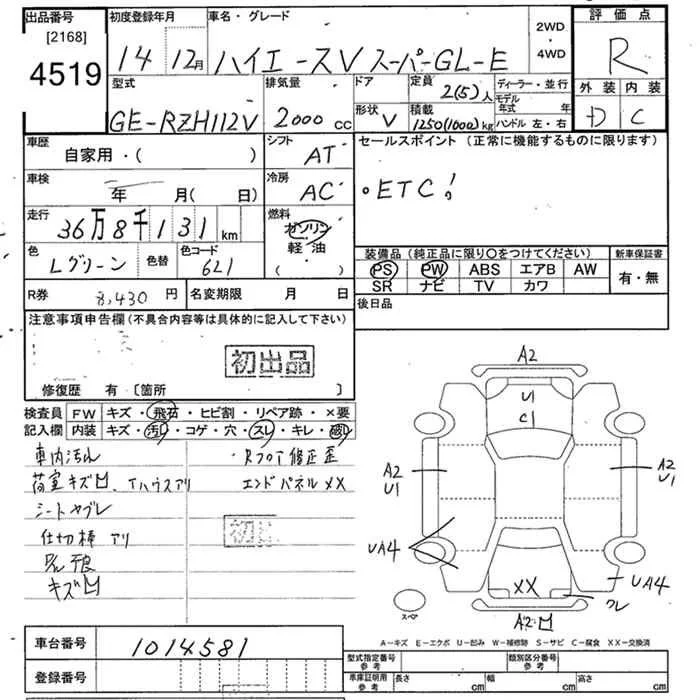 出品番号 [2168] 4519
初度登録年月 14 12月
車名・グレード ハイエースV スーパーGL-E
2WD ・ 4WD
評価点 R
外装 内装 D C
型式 GE-RZH112V
排気量 2000 cc
ドア 形状 V
定員 2(5)人
積載 1250(1000)kg
ディーラー・並行
モデル年式 年
ハンドル 左・右
車歴 自家用・( )
シフト AT
セールスポイント(正常に機能するものに限ります)
・ETC!
車検 年 月( 日)
冷房 AC
走行 36万8千131 km
燃料 ガソリン 軽油 ( ・ )
色 Lグリーン 色替 色コード 6L1
装備品(純正品に限り○をつけてください)
新車保証書 有・無
PS PW ABS エアB AW
SR ナビ TV カワ
R券 8,430 円 名変期限 月 日
後日品
注意事項申告欄(不具合内容等は具体的に記入して下さい)
初出品
修復歴 有 〔箇所 〕
検査員記入欄
FW キズ・飛石・ヒビ割・リペア跡・×要
内装 キズ・汚し・コゲ・穴・スレ・キレ・破し
車内汚れ
荷室キズ凹、Tハウスアリ
シートヤブレ
仕切棒 アリ
キズ凹
・Rフロア修正歪
エンドパネルXX
初出品
A2
U1
C1
A2
U1
A2
U1
UA4
UA4
XX
クレ
A2凹
スペア
A-キズ E-エクボ U-凹み W-補修跡 S-サビ C-腐食 XX-交換済
車台番号 1014581
登録番号
型式指定番号 参考
類別区分番号 参考
車庫証明用 参考 長さ cm 幅 cm 高さ cm